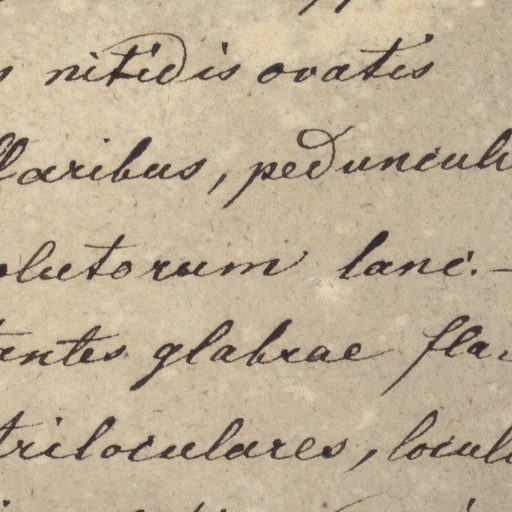 s nitidis ovatis
llaribus, peduncul
olutorum lanc.-
tantes glabrae fla
triloculares, locul